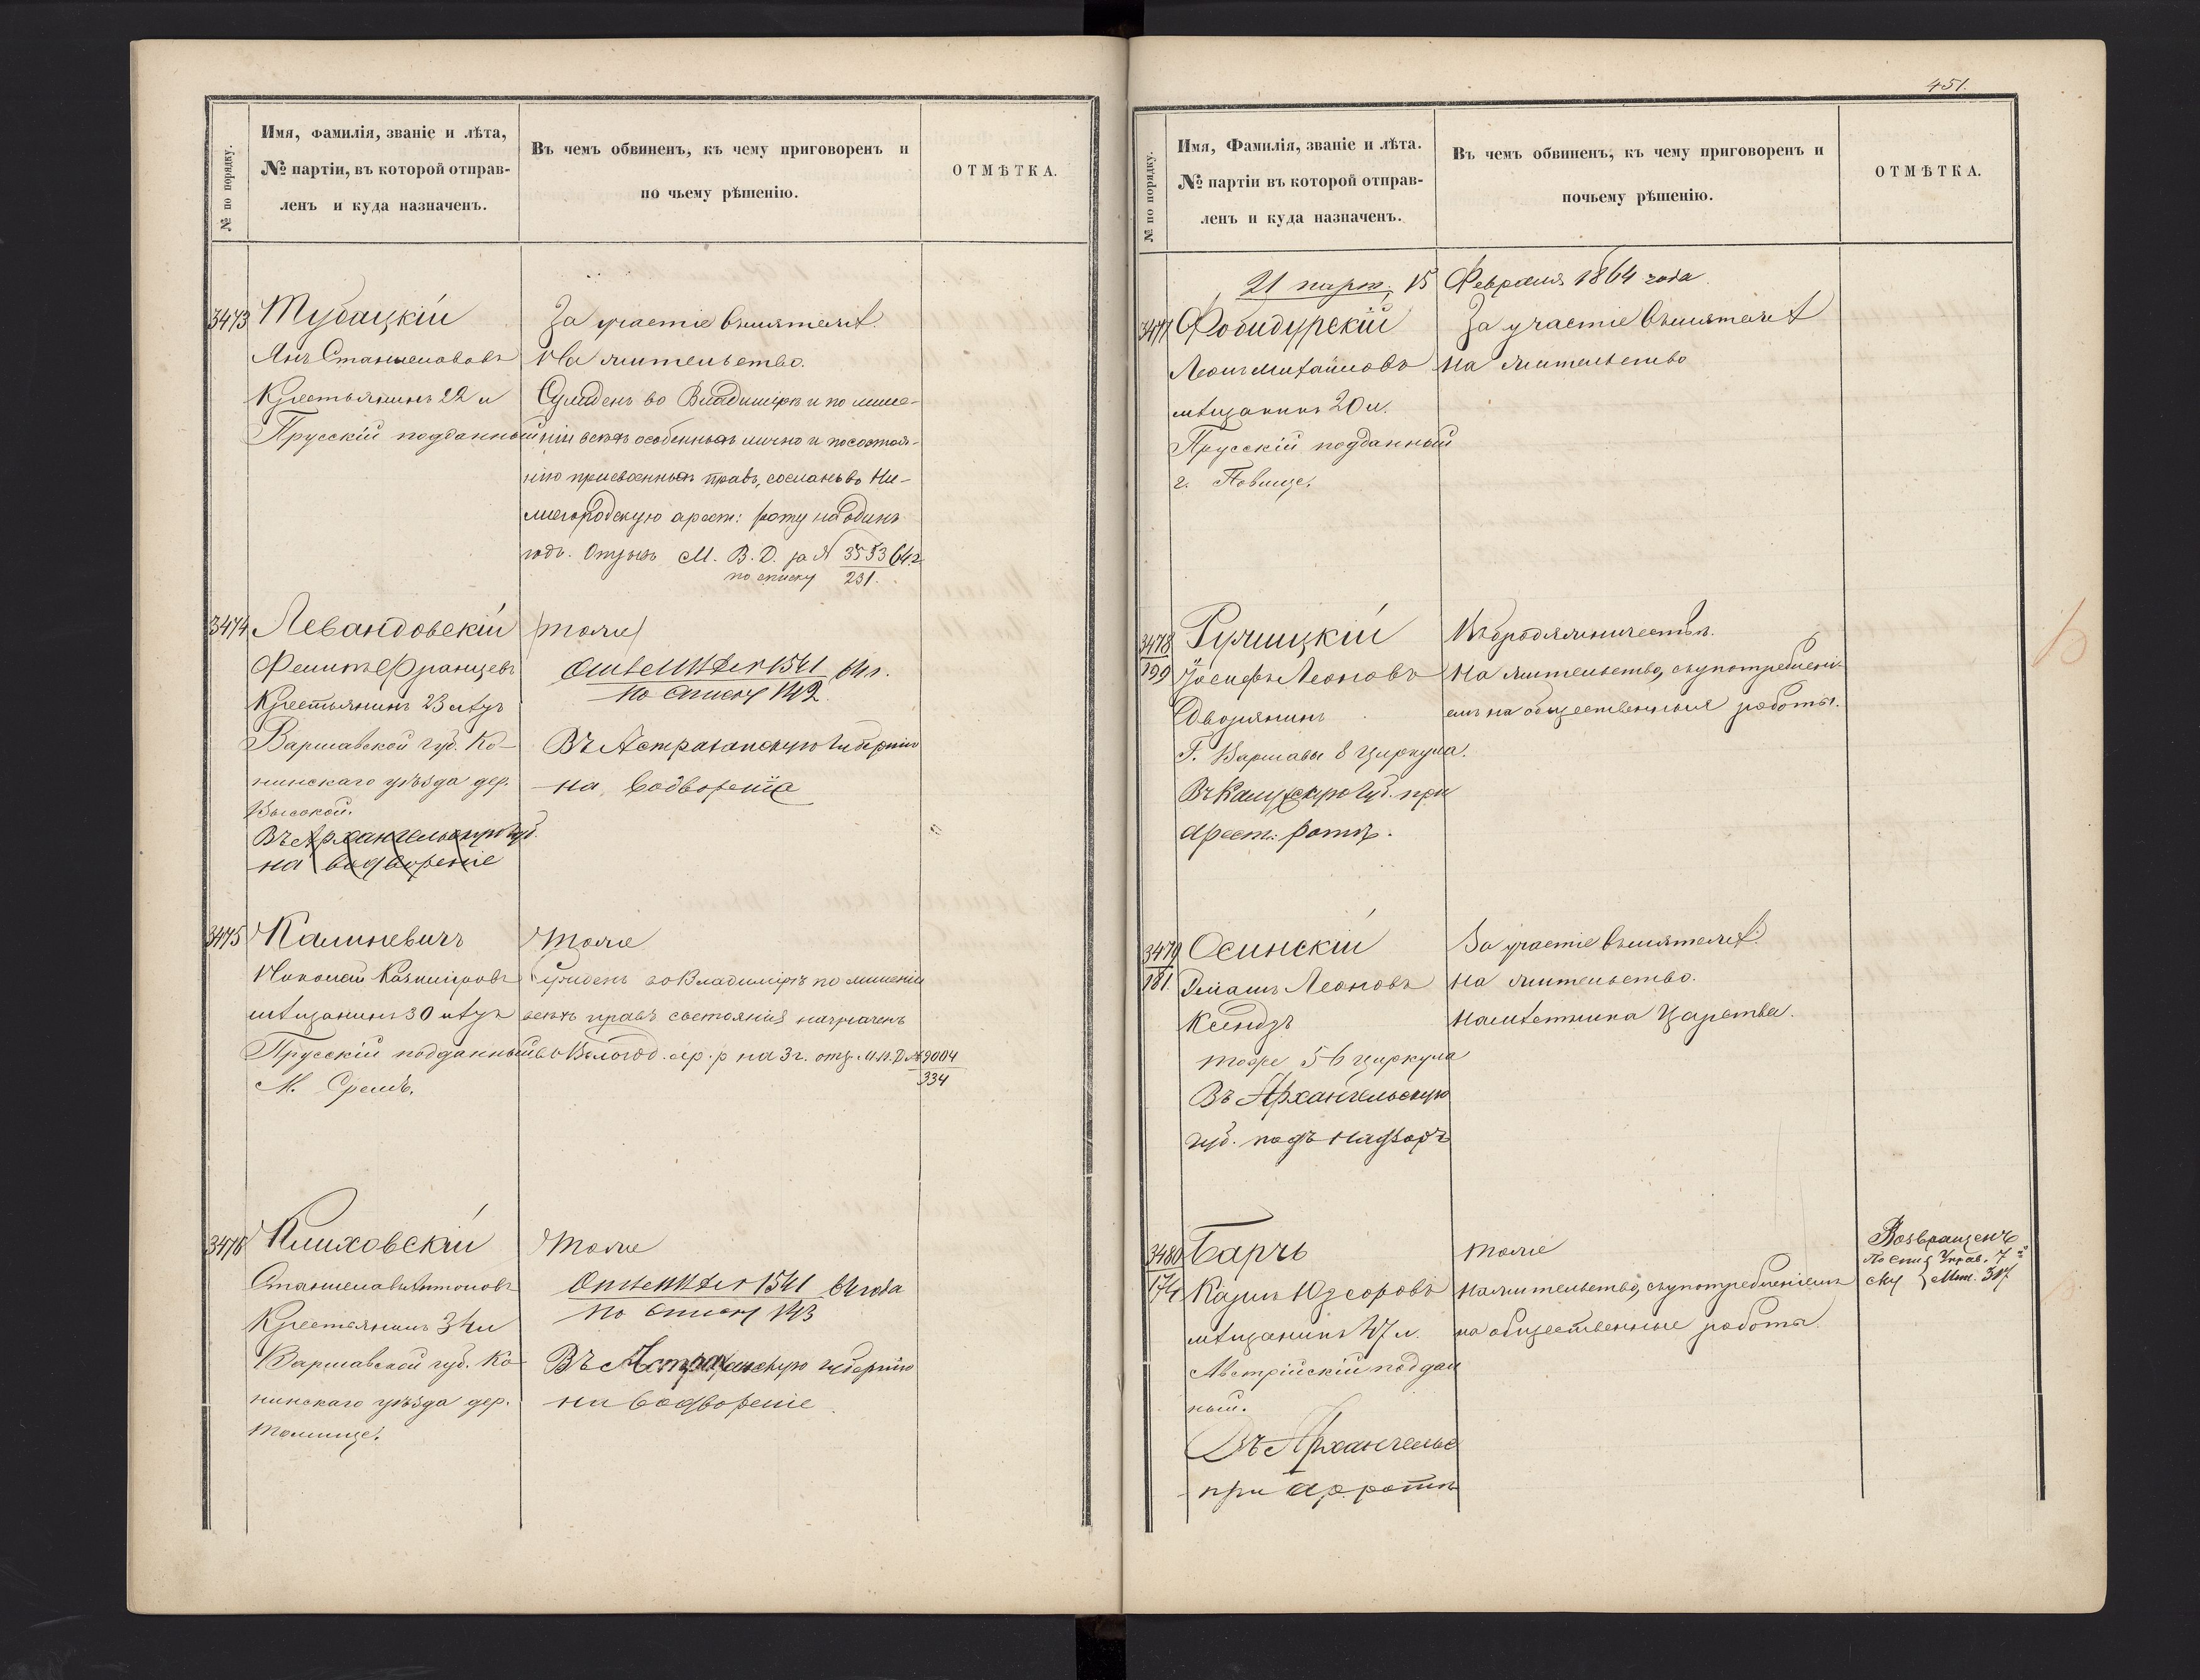 № по порядку.
Имя, Фамилія, званіе и лѣта,
№ партіи, въ которой отправ-
ленъ и куда назначенъ.
Въ чемъ обвиненъ, къ чему приговоренъ и
по чьему рѣшенію.
ОТМѢТКА.
3473
Тубацкій
Янъ Станиславовъ
Крестьянинъ 22 л
Прусскій подданный
За участіе въ мятежѣ.
На жительство.
Сужденъ во Владимірѣ и по лише-
ніи всѣхъ особенныхъ лично и по состоя-
нію присвоенныхъ правъ, сосланъ въ Ни-
жегородскую арест: роту на одинъ
годъ. Отзывъ М. В. Д. за № 3553 64 г.
по списку 231.
3474
Левандовскій
Феликсъ Францевъ
Крестьянинъ 23 лѣтъ
Варшавской губ. Ко-
нинскаго уѣзда дер.
Высокой.
Въ Архангельскую губ.
на водвореніе
тоже
1541 64 г.
по списку 142
Въ Астраханскую губернію
на водвореніе
3475
Калиневичъ
Николай Казиміровъ
мѣщанинъ 30 лѣтъ
Прусскій подданный
М. Сремъ.
Тоже
Сужденъ во Владимірѣ по лишеніи
всѣхъ правъ состоянія назначенъ
въ Вологод. ар. р на 3 г. отз. М. В. Д № 9004
334
3476
Клиховскій
Станиславъ Антоновъ
Крестьянинъ 34 л
Варшавской губ. Ко-
нинскаго уѣзда дер.
Тоже
1541 64 года
по списку 143
Въ Астраханскую губернію
на водвореніе
451.
№ по порядку.
Имя, Фамилія, званіе и лѣта.
№ партіи въ которой отправ-
ленъ и куда назначенъ.
Въ чемъ обвиненъ, къ чему приговоренъ и
почьему рѣшенію.
ОТМѢТКА.
21 парт; 15 Февраля 1864 года
3477
Леонъ Михайловъ
мѣщанинъ 20 л.
Прусскій подданный
г.
За участіе въ мятежѣ
на жительство
3478
199
Ружицкій
Іосифъ Леоновъ
Дворянинъ
Г. Варшавы 8 циркула.
Въ Калужскую губ. при
арест: ротѣ.
Въ бродяжничествѣ.
На жительство, съ употребленi-
емъ на общественныя работы.
3479
181
Осинскій
Леоновъ
Ксендзъ
тоже 5-6 циркула
Въ Архангельскую
губ. подъ надзоръ
За участіе въ мятежѣ.
на жительство.
Намѣстника Царства.
3480
174
Барчъ
Юзефовъ
мѣщанинъ 47 л.
Австрійскій поддан
ный.
Въ Архангельс
при ар. ротѣ
тоже
на жительство, съ употребленіемъ
на общественные работы.
Возвращенъ
По спи- Управ. 7
ску 317